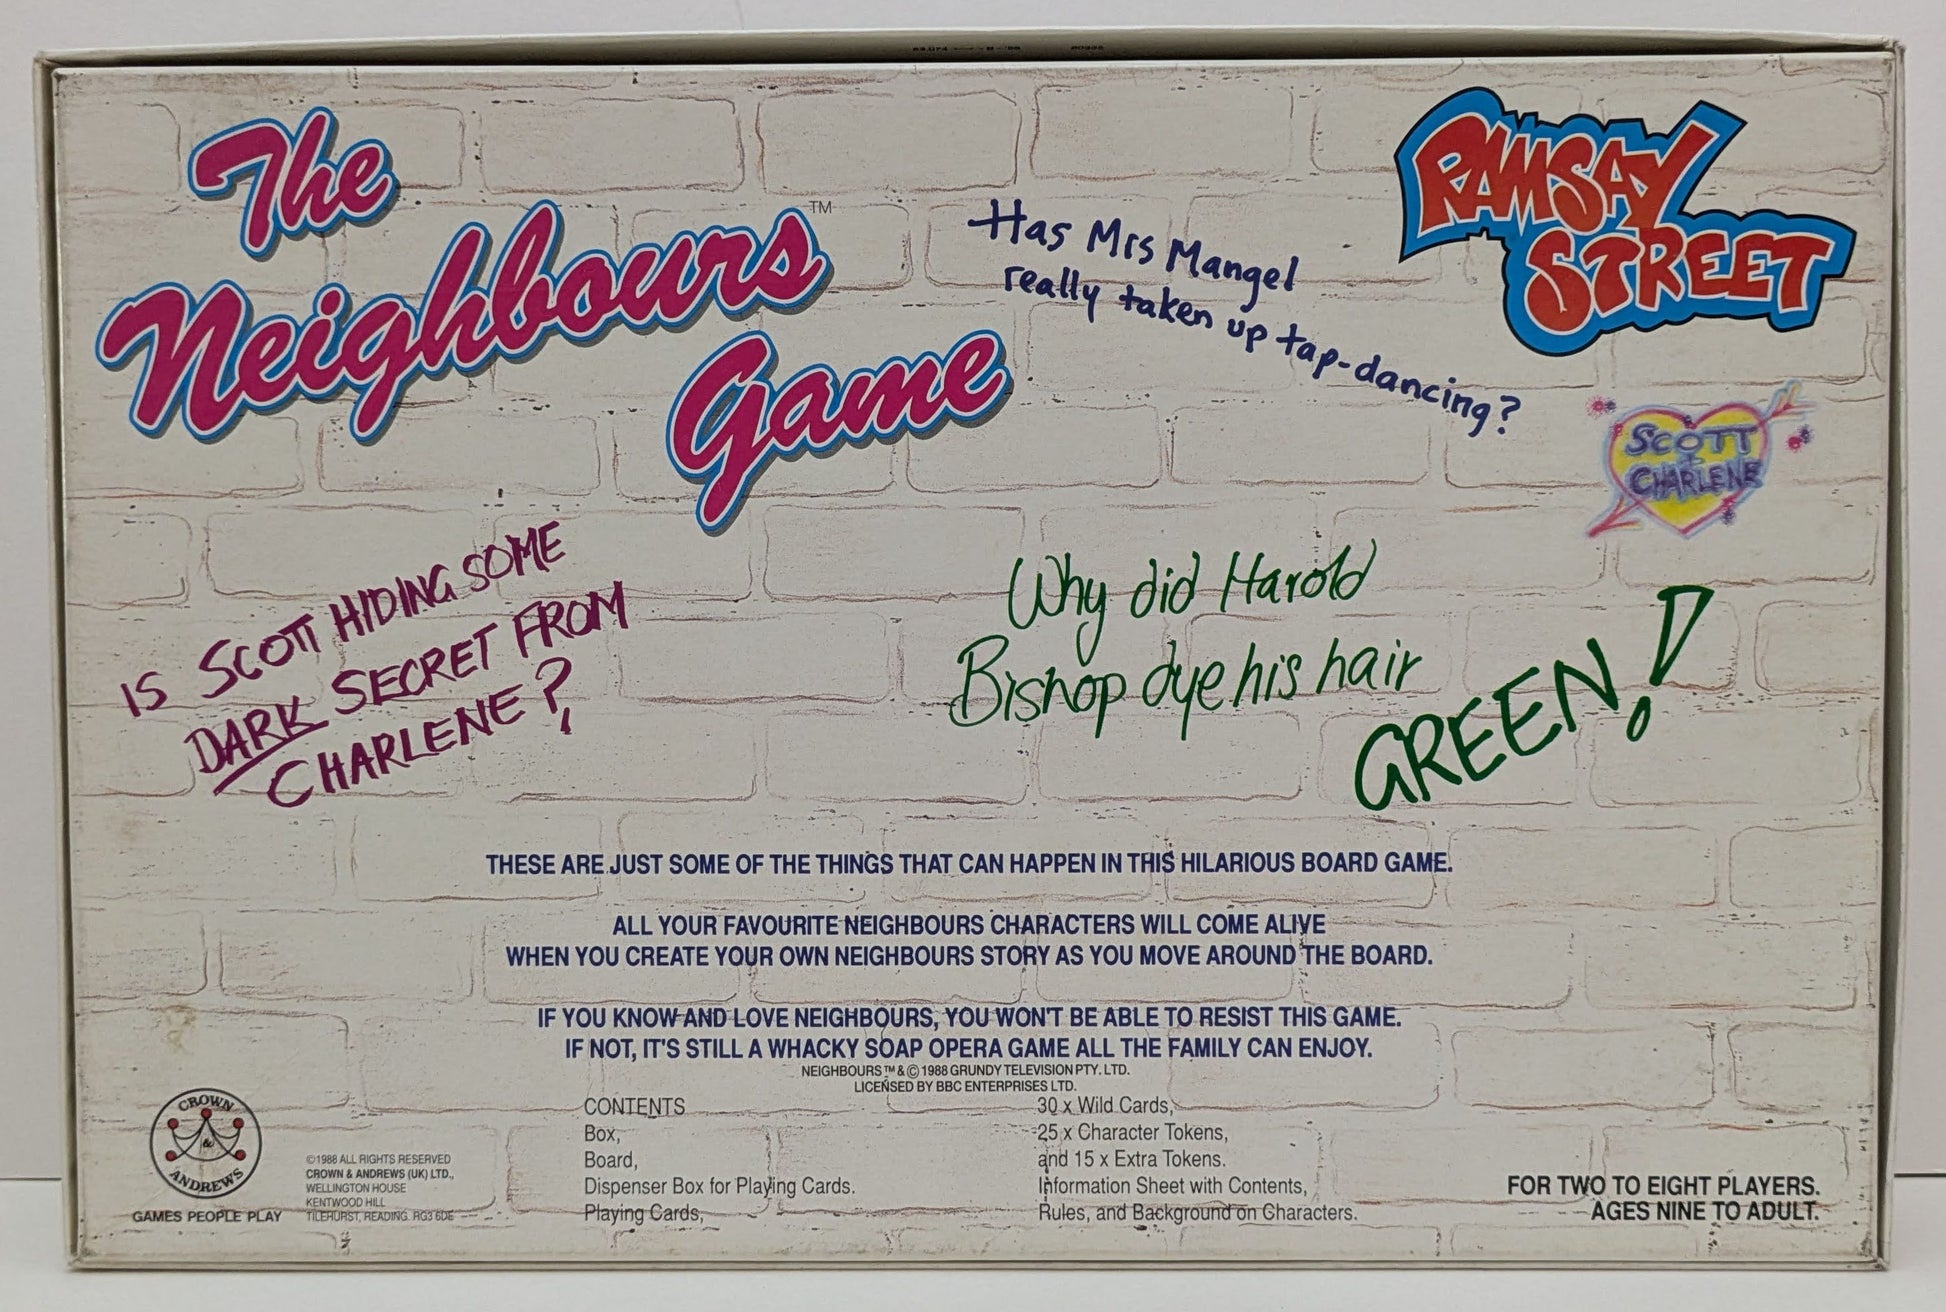 The
Neighbours™
Game
RAMSAY
STREET
Has Mrs Mangel
really taken up tap-dancing?
SCOTT
+
CHARLENE
IS SCOTT HIDING SOME
DARK SECRET FROM
CHARLENE?
Why did Harold
Bishop dye his hair
GREEN!
THESE ARE JUST SOME OF THE THINGS THAT CAN HAPPEN IN THIS HILARIOUS BOARD GAME.
ALL YOUR FAVOURITE NEIGHBOURS CHARACTERS WILL COME ALIVE
WHEN YOU CREATE YOUR OWN NEIGHBOURS STORY AS YOU MOVE AROUND THE BOARD.
IF YOU KNOW AND LOVE NEIGHBOURS, YOU WON'T BE ABLE TO RESIST THIS GAME.
IF NOT, IT'S STILL A WHACKY SOAP OPERA GAME ALL THE FAMILY CAN ENJOY.
NEIGHBOURS™ & © 1988 GRUNDY TELEVISION PTY. LTD.
LICENSED BY BBC ENTERPRISES LTD.
CROWN
&
ANDREWS
GAMES PEOPLE PLAY
©1988 ALL RIGHTS RESERVED
CROWN & ANDREWS (UK) LTD.,
WELLINGTON HOUSE
KENTWOOD HILL
TILEHURST, READING. RG3 6DE
CONTENTS
Box,
Board,
Dispenser Box for Playing Cards.
Playing Cards,
30 x Wild Cards,
25 x Character Tokens,
and 15 x Extra Tokens.
Information Sheet with Contents,
Rules, and Background on Characters.
FOR TWO TO EIGHT PLAYERS.
AGES NINE TO ADULT.